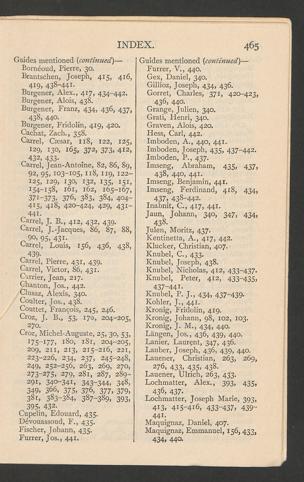 INDEX. 465
Guides mentioned (continued)—
Bornéoud, Pierre, 30.
Brantschen, Joseph, 415, 416,
419, 438-441.
Burgener, Alex., 417, 434-442.
Burgener, Alois, 438.
Burgener, Franz, 434, 436, 437,
438, 440.
Burgener, Fridolin, 419, 420.
Cachat, Zach., 358.
Carrel, Cæsar, 118, 122, 125,
129, 130, 165, 372, 373, 412,
432, 433.
Carrel, Jean-Antoine, 82, 86, 89,
92, 95, 103-105, 118, 119, 122-
125, 129, 130, 132, 135, 151,
154-158, 161, 162, 165-167,
371-373, 376, 383, 384, 404-
415, 418, 420-424, 429, 431-
441.
Carrel, J. B., 412, 432, 439.
Carrel, J.-Jacques, 86, 87, 88,
90, 95, 431.
Carrel, Louis, 156, 436, 438,
439.
Carrel, Pierre, 431, 439.
Carrel, Victor, 86, 431.
Carrier, Jean, 217.
Chanton, Jos., 442.
Clusaz, Alexis, 340.
Coulter, Jos., 438.
Couttet, François, 245, 246.
Croz, J. B., 53, 170, 204-205,
270.
Croz, Michel-Auguste, 25, 30, 53,
175-177, 180, 181, 204-205,
209, 211, 213, 215-216, 221,
223-226, 234, 237, 245-248,
249, 252-256, 263, 269, 270,
273-275, 279, 281, 287, 289-
291, 340-341, 343-344, 348,
349, 366, 375, 376, 377, 379,
381, 383-384, 387-389, 393,
395, 432.
Cupelin, Edouard, 435.
Dévouassoud, F., 435.
Fischer, Johann, 435.
Furrer, Jos., 441.
Guides mentioned (continued)—
Furrer, V., 440.
Gex, Daniel, 340.
Gillioz, Joseph, 434, 436.
Gorret, Charles, 371, 420-423,
436, 440.
Grange, Julien, 340.
Grati, Henri, 340.
Graven, Alois, 420.
Hess, Carl, 442.
Imboden, A., 440, 441.
Imboden, Joseph, 435, 437-442.
Imboden, P., 437.
Imseng, Abraham, 435, 437,
438, 440, 441.
Imseng, Benjamin, 441.
Imseng, Ferdinand, 418, 434,
437, 438-442.
Inabnit, C., 417, 441.
Jaun, Johann, 340, 347, 434,
438.
Julen, Moritz, 437.
Kentinetta, A., 417, 442.
Klucker, Christian, 407.
Knubel, C., 433.
Knubel, Joseph, 438.
Knubel, Nicholas, 412, 433-437.
Knubel, Peter, 412, 433-435,
437-441.
Knubel, P. J., 434, 437-439.
Kohler, J., 441.
Kronig, Fridolin, 419.
Kronig, Johann, 98, 102, 103.
Kronig, J. M., 434, 440.
Längen, Jos., 436, 439, 440.
Lanier, Laurent, 347, 436.
Lauber, Joseph, 436, 439, 440.
Lauener, Christian, 263, 269,
276, 433, 435, 438.
Lauener, Ulrich, 263, 433.
Lochmatter, Alex., 393, 435,
436, 437.
Lochmatter, Joseph Marie, 393,
413, 415-416, 433-437, 439-
441.
Maquignaz, Daniel, 407.
Maquignaz, Emmanuel, 156, 433,
434, 440.